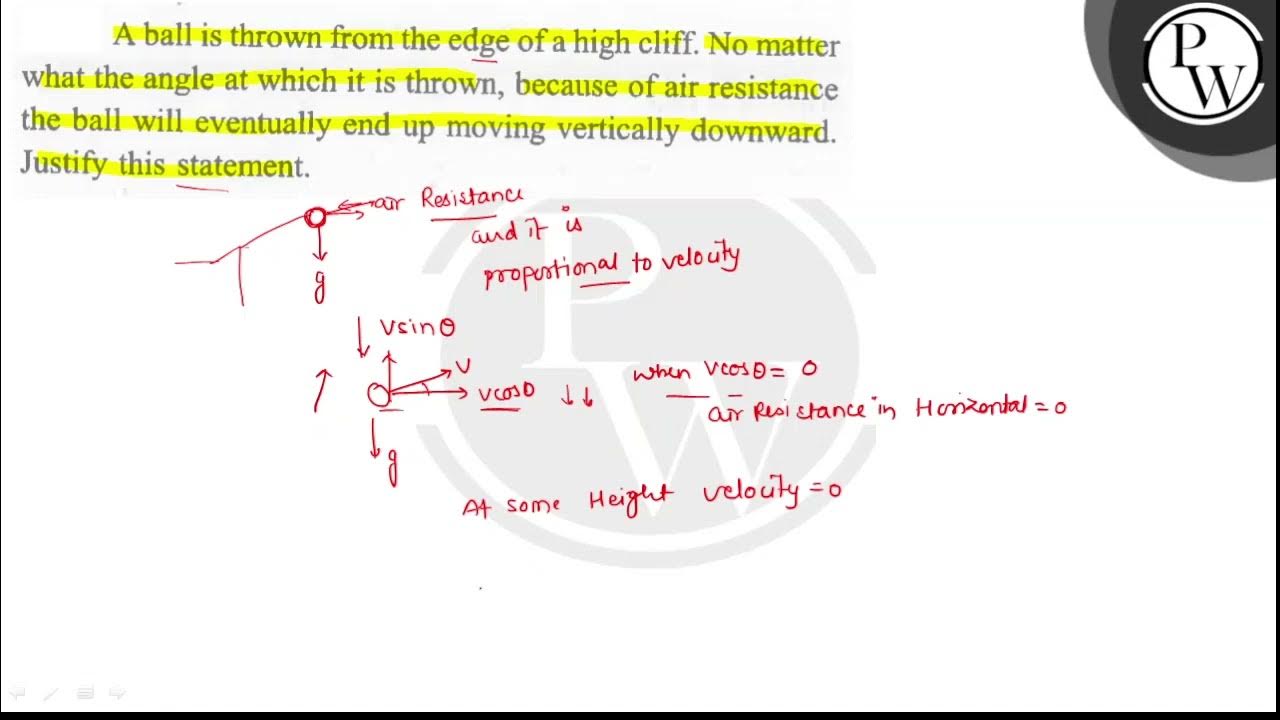 A ball is thrown from the edge of a high cliff. No matter
what the angle at which it is thrown, because of air resistance
the ball will eventually end up moving vertically downward.
Justify this statement.
P
W
air Resistance
and it is
proportional to velocity
g
vsinθ
v
vcosθ
g
when vcosθ = 0
air Resistance in Horizontal = 0
At some Height velocity = 0
P
W